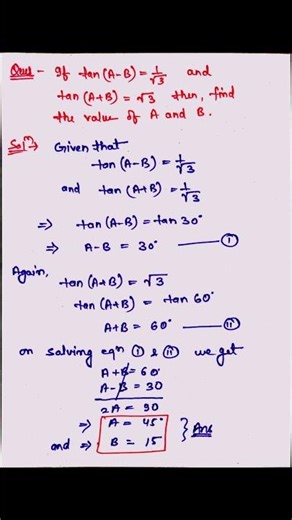 Ques - If tan(A-B) = 1/√3 and
tan(A+B) = √3 then, find
the value of A and B.
Solⁿ) Given that
tan(A-B) = 1/√3
and tan(A+B) = 1/√3
⇒ tan(A-B) = tan 30°
⇒ A-B = 30° —— (I)
Again,
tan(A+B) = √3
tan(A+B) = tan 60°
A+B = 60° —— (II)
on solving eqⁿ (I) & (II) we get
A+B = 60
A-B = 30
2A = 90
⇒ A = 45°
and ⇒ B = 15 } Ans